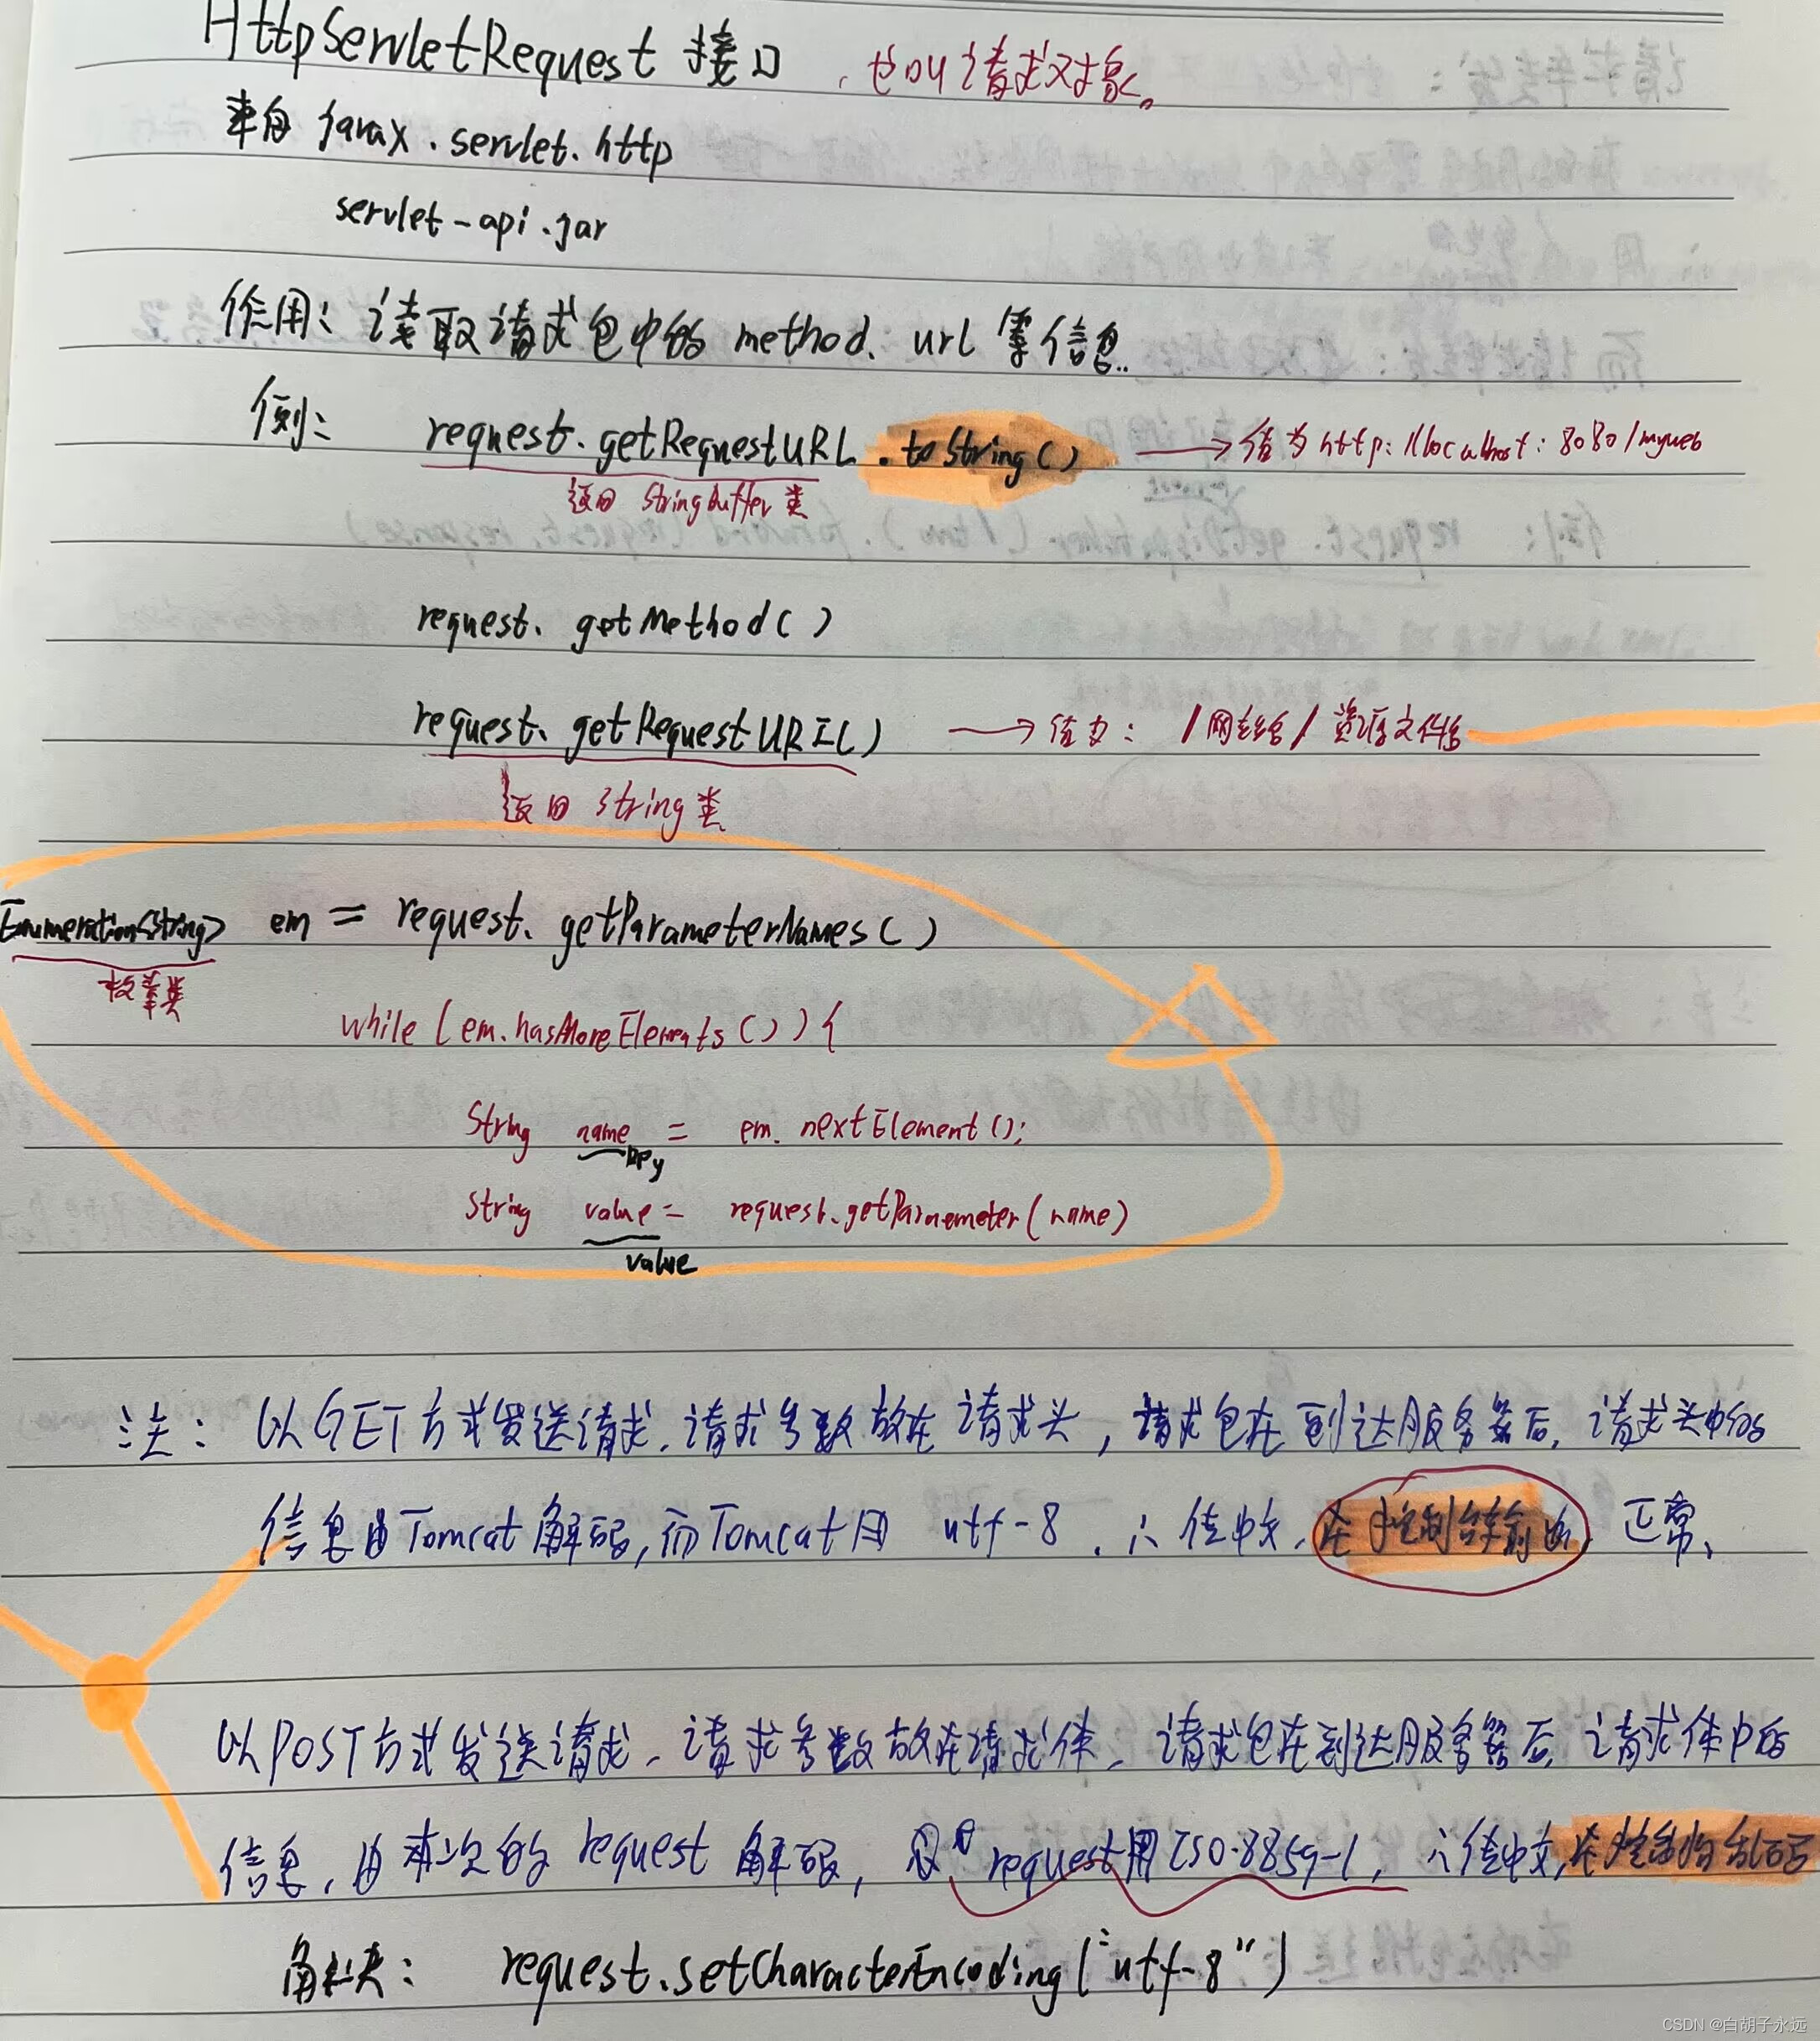 HttpServletRequest 接口 、也叫请求对象。
来自 javax.servlet.http
servlet-api.jar
作用：读取请求包中的 method、url 等信息..
例： request.getRequestURL.toString() → 值为 http://localhost:8080/myweb
返回 StringBuffer 类
request、getMethod()
request、getRequestURI() → 值为： /网站名/资源文件名
返回 String 类
Enumeration<String> em = request、getParameterNames()
枚举类
while (em.hasMoreElements()){
String name = em.nextElement();
String value = request.getParaemeter(name)
value
注： 以GET方式发送请求，请求参数放在请求头，请求包在到达服务器后，请求头中的
信息由Tomcat解码，而Tomcat用 utf-8 ，∴值中文，在控制台输出，正常、
以POST方式发送请求、请求参数放在请求体、请求包在到达服务器后，请求体中的
信息，由本次的request解码， request用ISO-8859-1， ∴值中文，在 乱码
解决： request.setCharacterEncoding("utf-8")
CSDN @白胡子永远